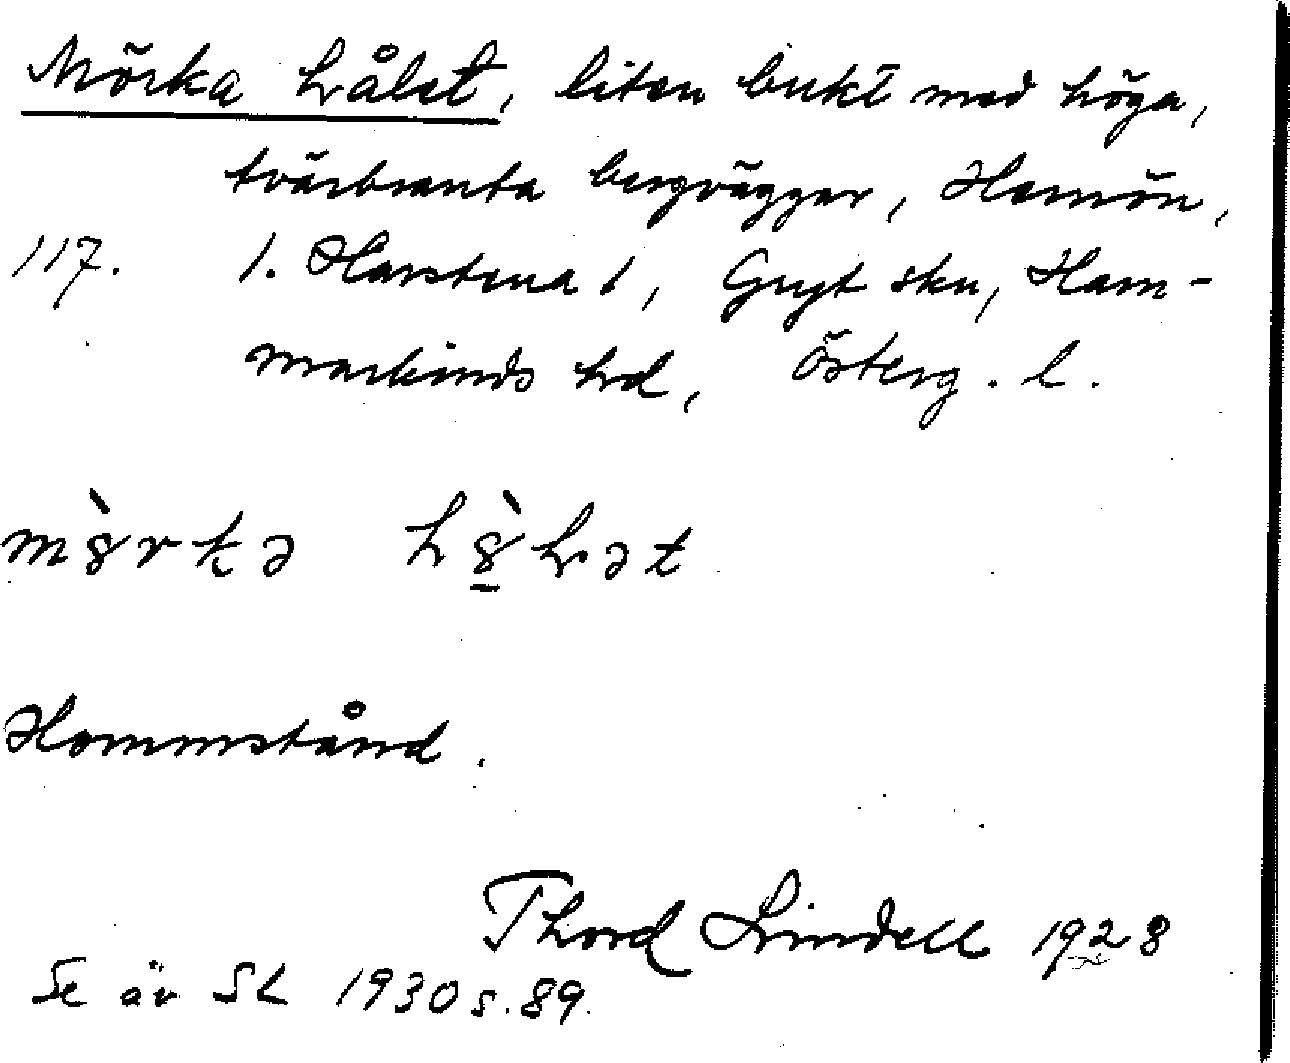 Mörka hålet, liten bukt med höga,
tvärbranta bergväggar, Hamön,
117. 1. Harstena 1, Gryt skn, Ham-
markinds hd, Österg. l.
Hommstånd.
Thord Lindell 1928
Se äv SL 1930 s. 89.